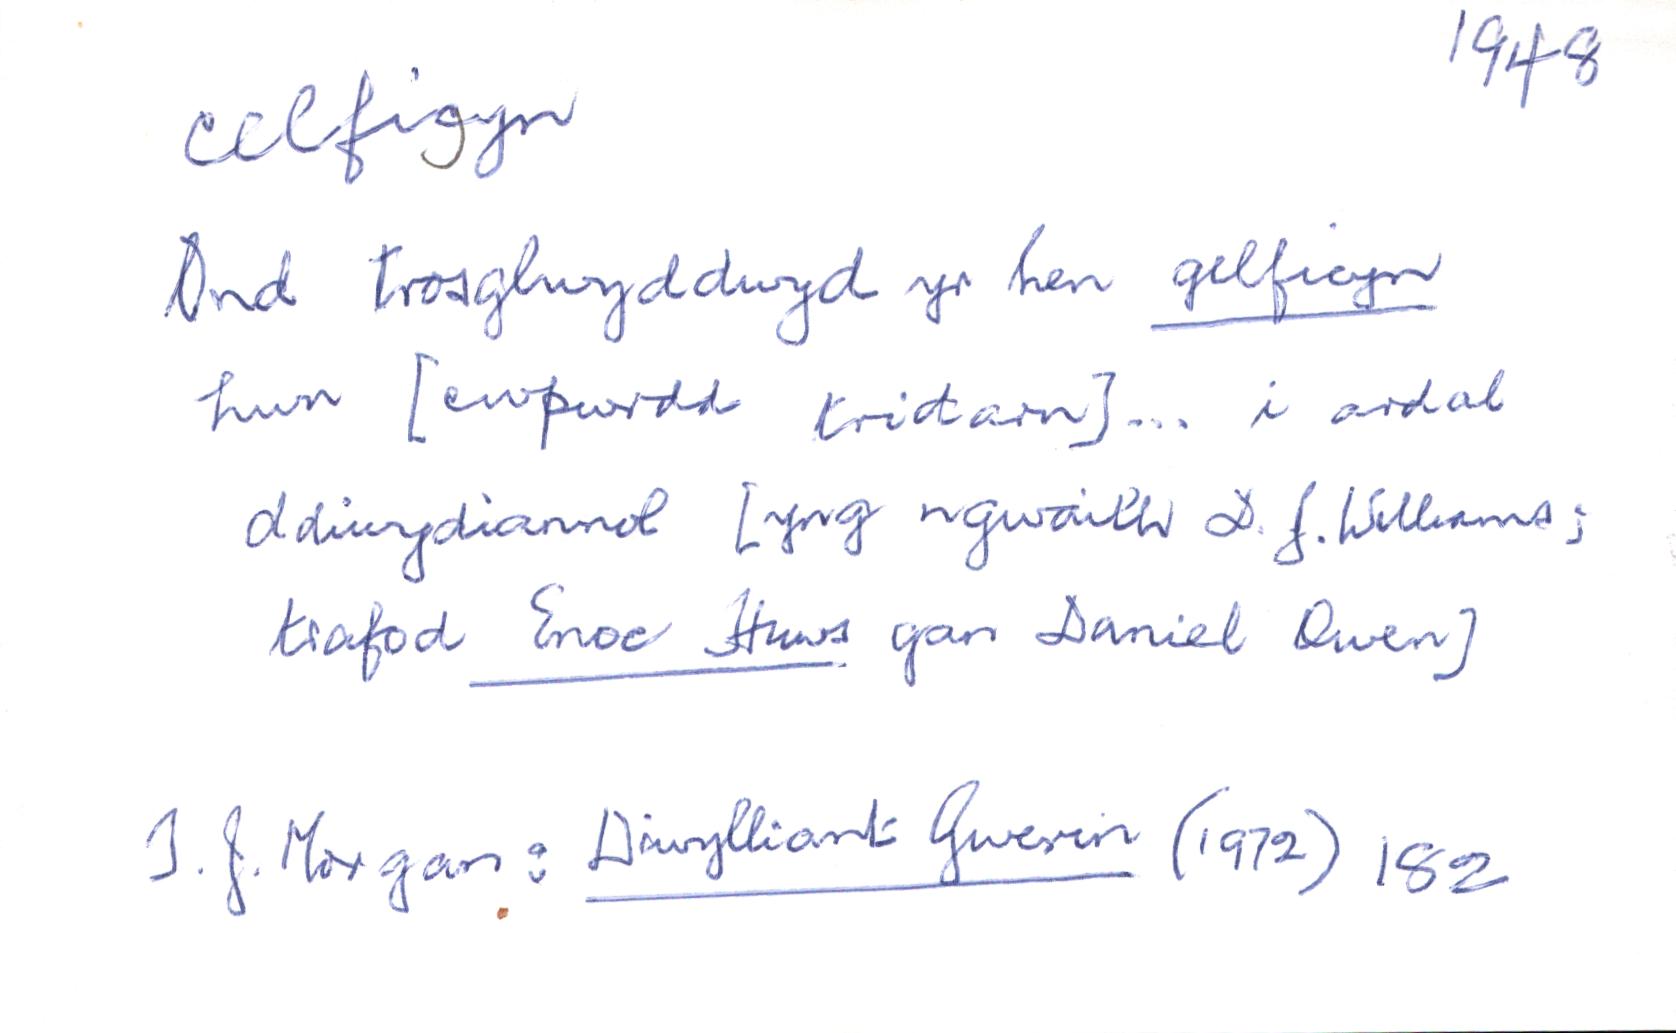 1948
celfigyn
Ond trosglwyddwyd yr hen gelficyn
hwn [cwpwrdd tridarn]... i ardal
ddiwydiannol [yng ngwaith D. J. Williams;
trafod Enoc Huws gan Daniel Owen]
T. J. Morgan: Diwylliant Gwerin (1972) 182